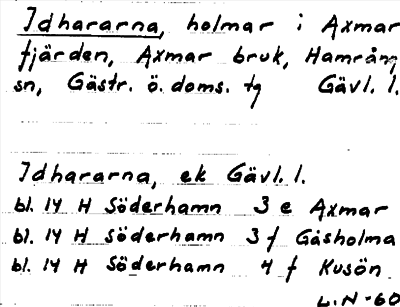 Idhararna, holmar i Axmar
fjärden, Axmar bruk, Hamrång
sn, Gästr. ö. doms. tg Gävl. l.
Idhararna, ek Gävl. l.
bl. 14 H Söderhamn 3 e Axmar
bl. 14 H Söderhamn 3 f Gåsholma
bl. 14 H Söderhamn 4 f Kusön
L.N-60